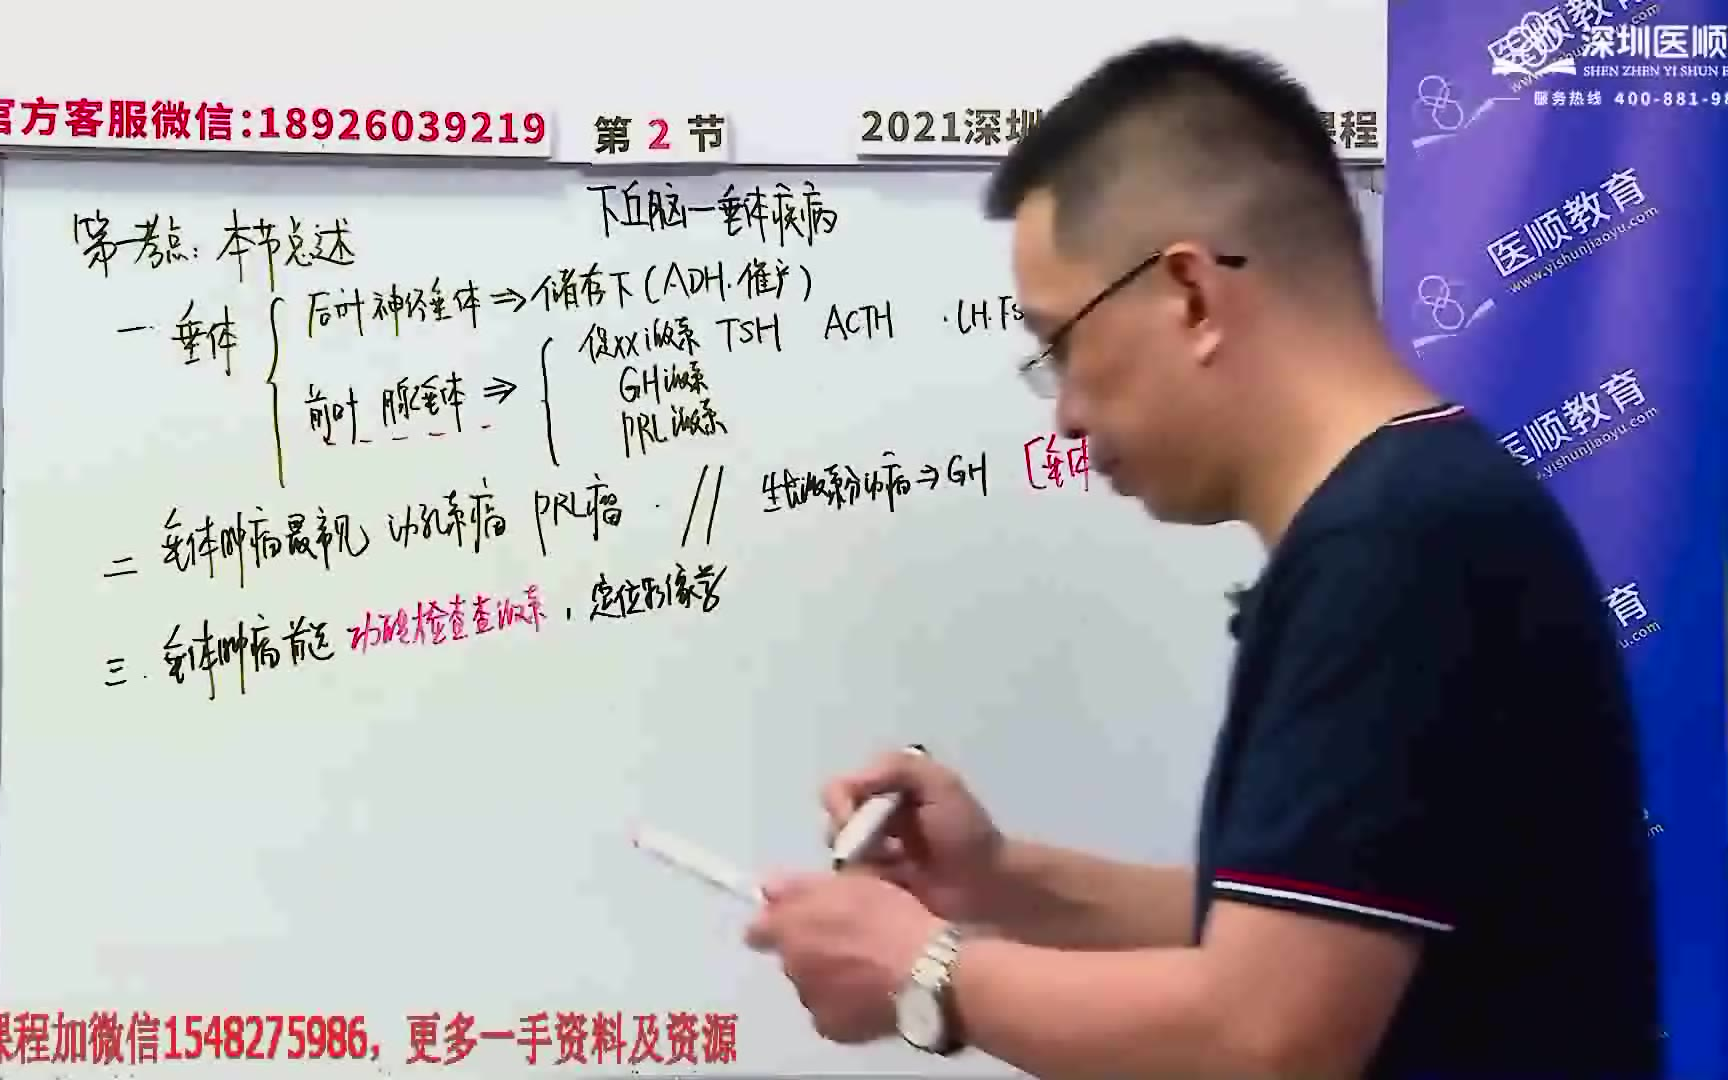 医顺教育
深圳医顺
SHEN ZHEN YI SHUN E
服务热线 400-881-98
官方客服微信:18926039219
第 2 节
2021深圳
课程
下丘脑一垂体疾病
第一考点: 本节总述
一 垂体
后叶 神经垂体 ⇒ 储存下(ADH.催产)
前叶 腺垂体 ⇒
促xx激素 TSH ACTH .LH.FS
GH激素
PRL激素
二 垂体肿瘤最常见 泌乳素瘤 PRL瘤 . // 生长激素分泌瘤⇒GH [垂体
三. 垂体肿瘤首选 功能检查查激素, 定位影像学
医顺教育
www.yishunjiaoyu.com
医顺教育
www.yishunjiaoyu.com
育
u.com
课程加微信1548275986，更多一手资料及资源